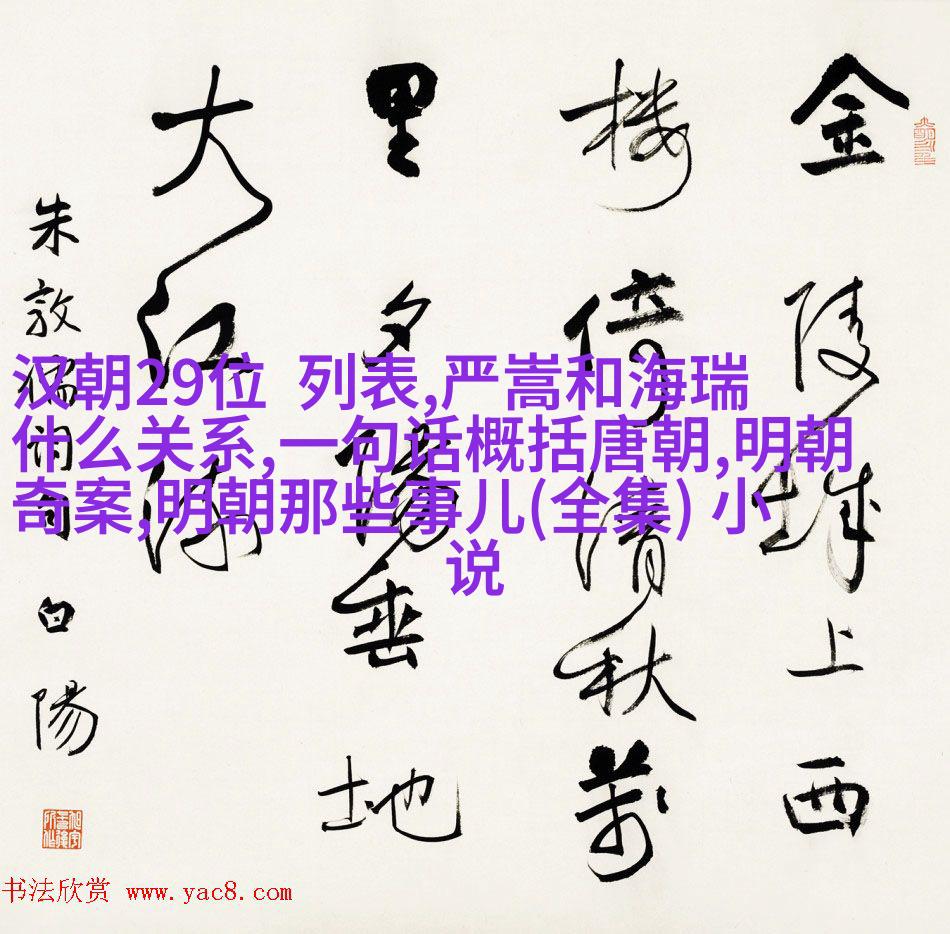 金陵城上西
樓倚清秋萬
里夕陽垂地
大江流
朱敦儒詞句 白陽
汉朝29位 列表,严嵩和海瑞
什么关系,一句话概括唐朝,明朝
奇案,明朝那些事儿(全集) 小
说
书法欣赏 www.yac8.com